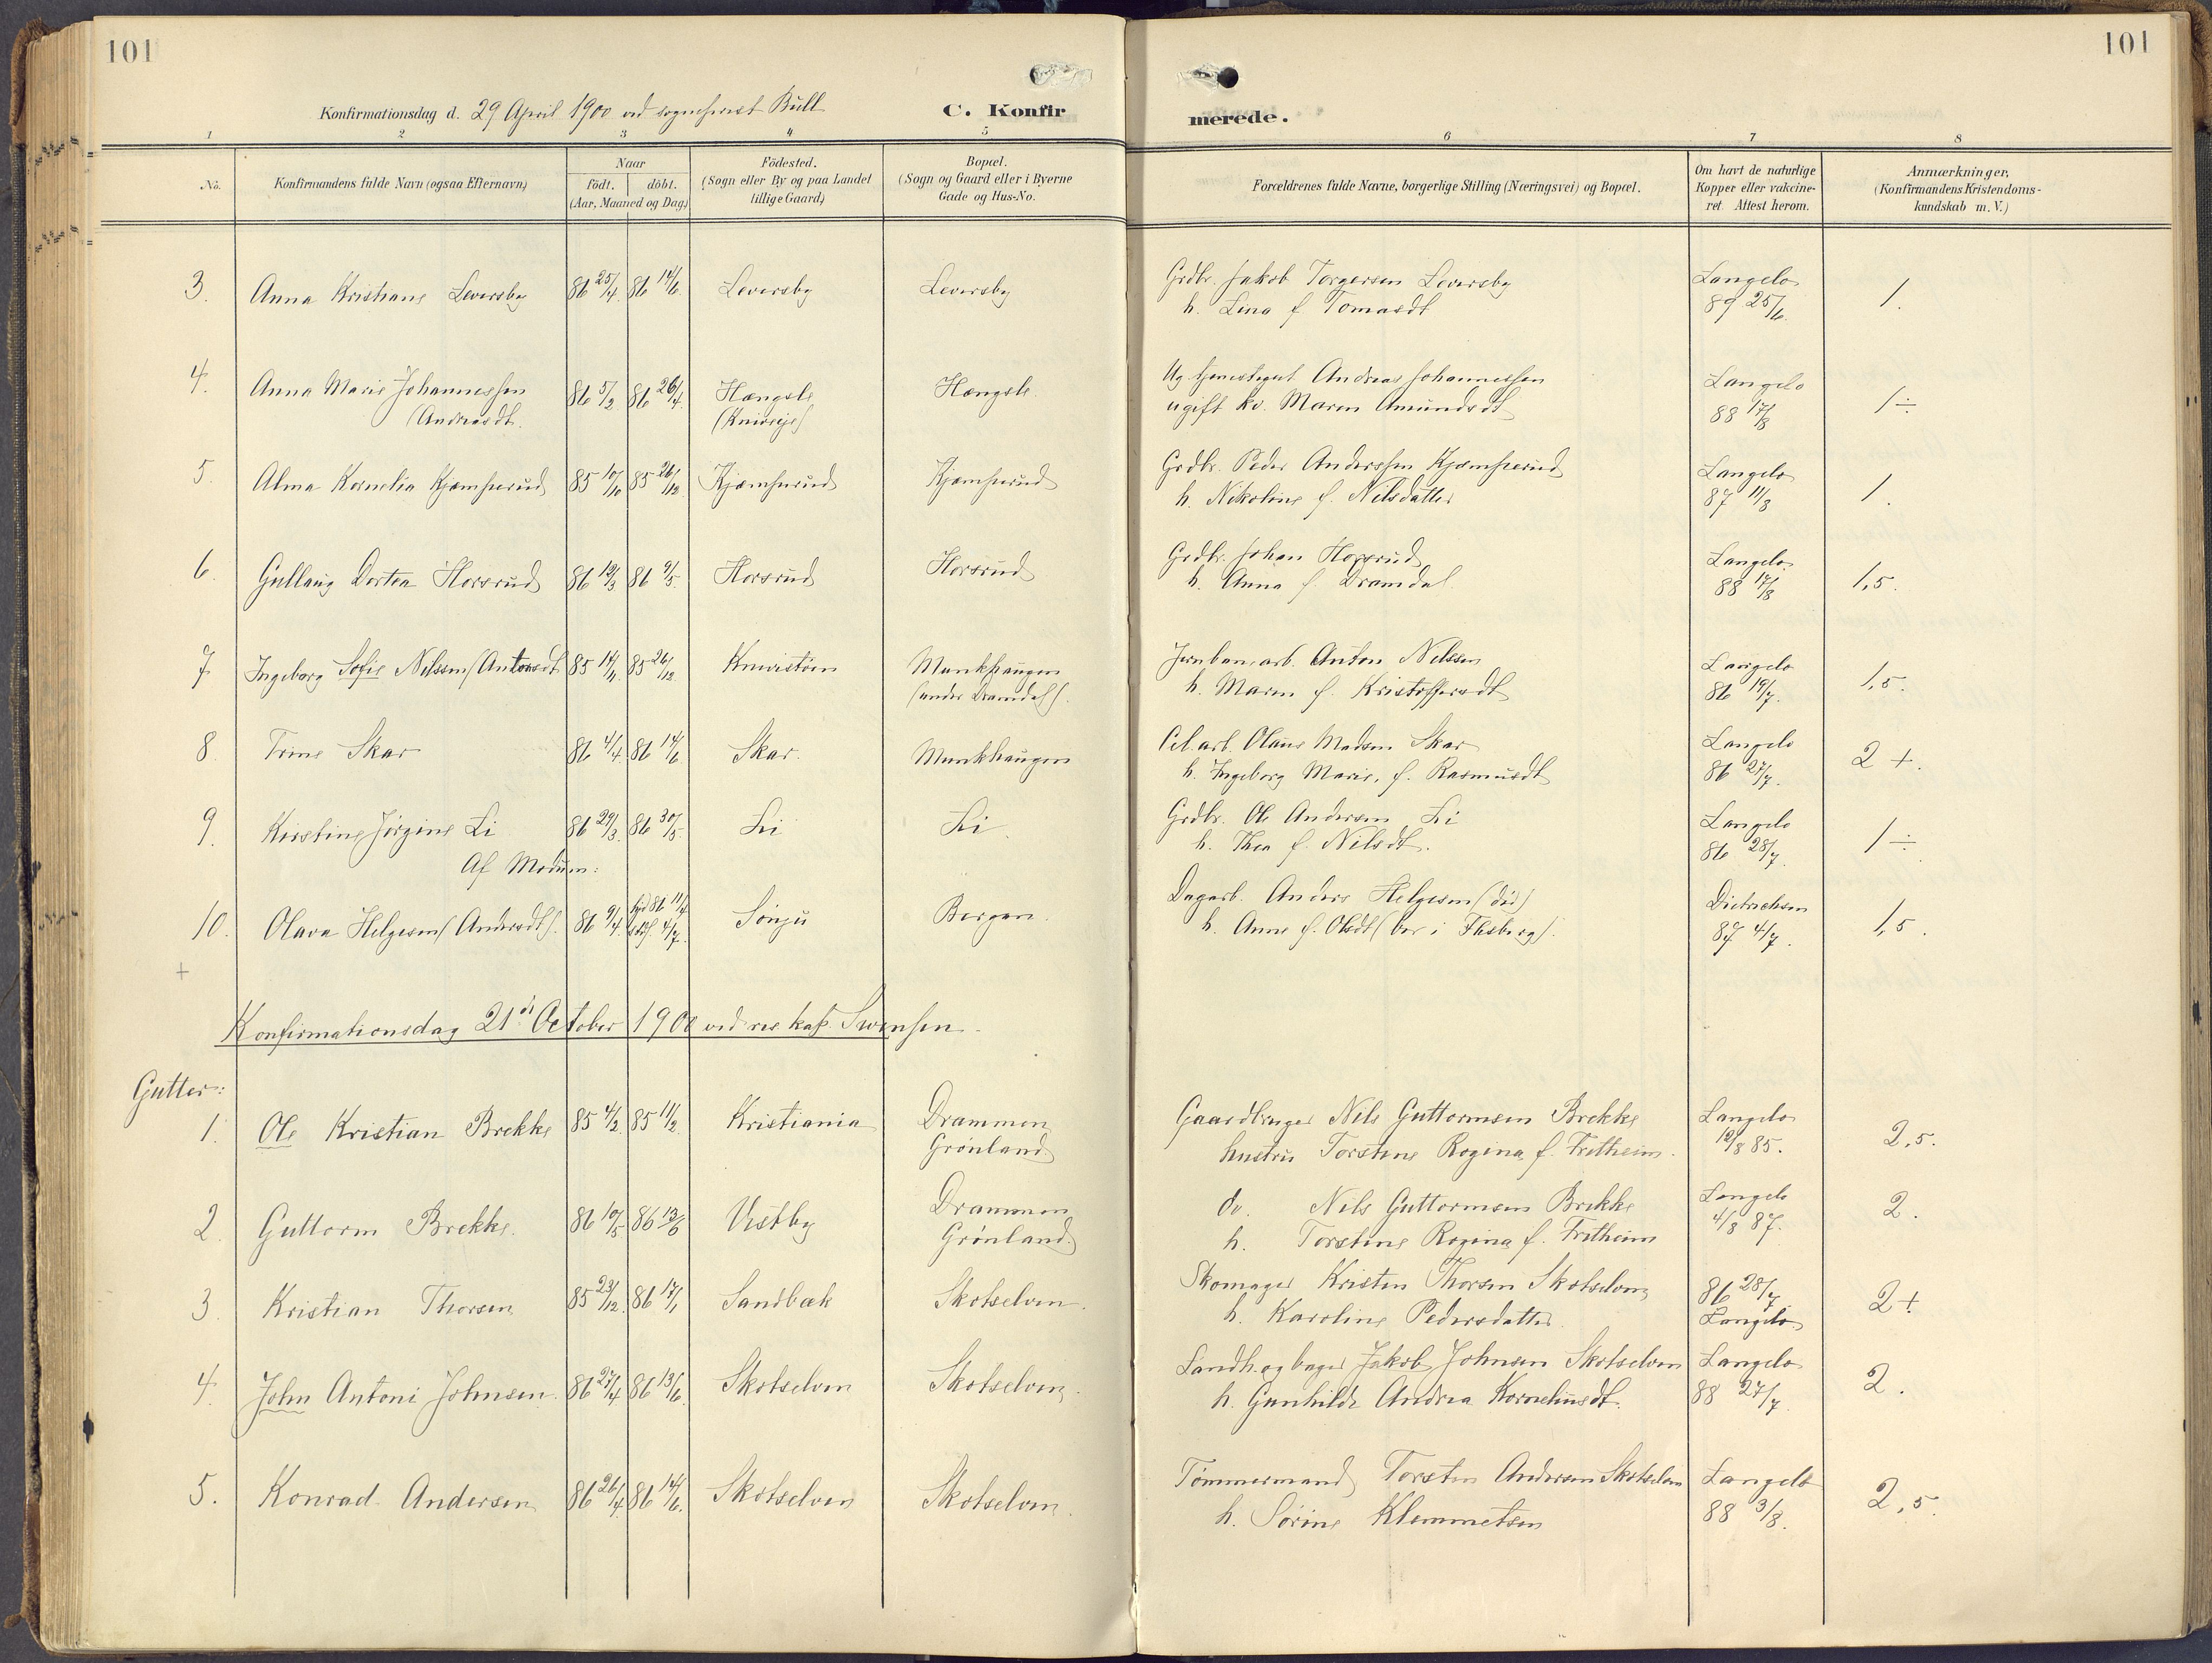 101
101
Konfirmationsdag d. 29 April 1900 ved sogneprest Bull
C. Konfir
merede.
1 2 3 4 5 6 7 8
No.
Konfirmandens fulde Navn (ogsaa Efternavn)
Naar
födt. döbt.
(Aar, Maaned og Dag)
Födested.
(Sogn eller By og paa Landet
tillige Gaard)
Bopæl.
(Sogn og Gaard eller i Byerne
Gade og Hus-No.
Forældrenes fulde Navne, borgerlige Stilling (Næringsvei) og Bopæl.
Om havt de naturlige
Kopper eller vakcine-
ret. Attest herom.
Anmærkninger.
(Konfirmandens Kristendoms-
kundskab m. V.)
3. Anna Kristiane Leversby 86 25/4. 86 14/6. Leversby Leversby Grdbr. Jakob Torgersen Leversby Langelo 1.
h. Lina f Tomasdt 89 25/6.
4. Anna Marie Johannessen 86 5/2 86 26/4. Hængsle Hængsle Ug. tjenestegut Andreas Johannessen Langelo 1 ÷
(Andreasdt. ugift kv. Maren Amundsdt 88 17/8
5. Alma Kornelia Kjæmperud 85 10/10 85 26/12. Kjæmperud Kjæmperud Grdbr. Peder Anderssen Kjæmperud Langelo 1.
h. Nikoline f. Nilsdatter 87 11/8
6. Gullaug Dortea Horsrud 86 19/3 86 9/5. Horsrud Horsrud Grdbr. Johan Horsrud Langelo 1,5.
h. Anna f. Dramdal. 88 17/8
7. Ingeborg Sofie Nilssen (Antonsdt 85 14/11. 85 26/12. Munkhaugen Jernbanearb. Anton Nilssen Langelo 1,5.
(under Dramdal). h. Maren f. Kristoffersdt 86 19/7.
8. Trine Skar 86 4/4. 86 14/6 Skar. Munkhaugen Cel.arb. Olaus Madsen Skar Langelo 2 +.
h. Ingeborg Marie, f. Rasmusdt 86 27/7.
9. Kirstine Jørgine Li 86 29/3. 86 30/5. Li Li. Grdbr. Ole Andersen Li Langelo 1 ÷
h. Thea f. Nilsdt. 86 28/7.
Af Modum:
10. Olava Helgesen (Andersdt). 86 9/4. hjd 86 11/4 Sønju Bergan. Dagarb. Anders Helgesen (død) Dietrichsen 1,5.
4/7. h. Anne f. Olsdt (bor i ). 87 4/7.
+
Konfirmationsdag 21de October 1900 ved res. kap. Swensen.
Gutter:
1. Ole Kristian Brekke 85 4/2. 85 11/2. Kristiania Drammen Gaardbruger Nils Guttormsen Brekke Langelo 2,5.
Grønland hustru Torstine Regina f. Fritheim. 12/8 85.
2. Guttorm Brekke. 86 10/5 86 13/6 Vestby Drammen do. Nils Guttormsen Brekke Langelo 2.
Grønland. h. Torstine Regina f. Fritheim 4/8 87.
3. Kristian Thorsen 85 23/12. 86 17/1 Sandbæk Skotselven. Skomager Kristen Thorsen Skotselven 86 28/7 2 +.
h. Karoline Pedersdatter. Langelo
4. John Antoni Johnsen. 86 27/4 86 13/6. Skotselven Skotselven. Landh. og bager Jakob Johnsen Skotselven Langelo 2.
h. Gunhilde Andrea Korneliusdt. 88 27/7.
5. Konrad Andersen 86 26/4. 86 14/6. Skotselven Skotselven. Tømmermand Torsten Andersen Skotselven Langelo 2,5.
h. Sørine Klemmetsen 88 3/8.